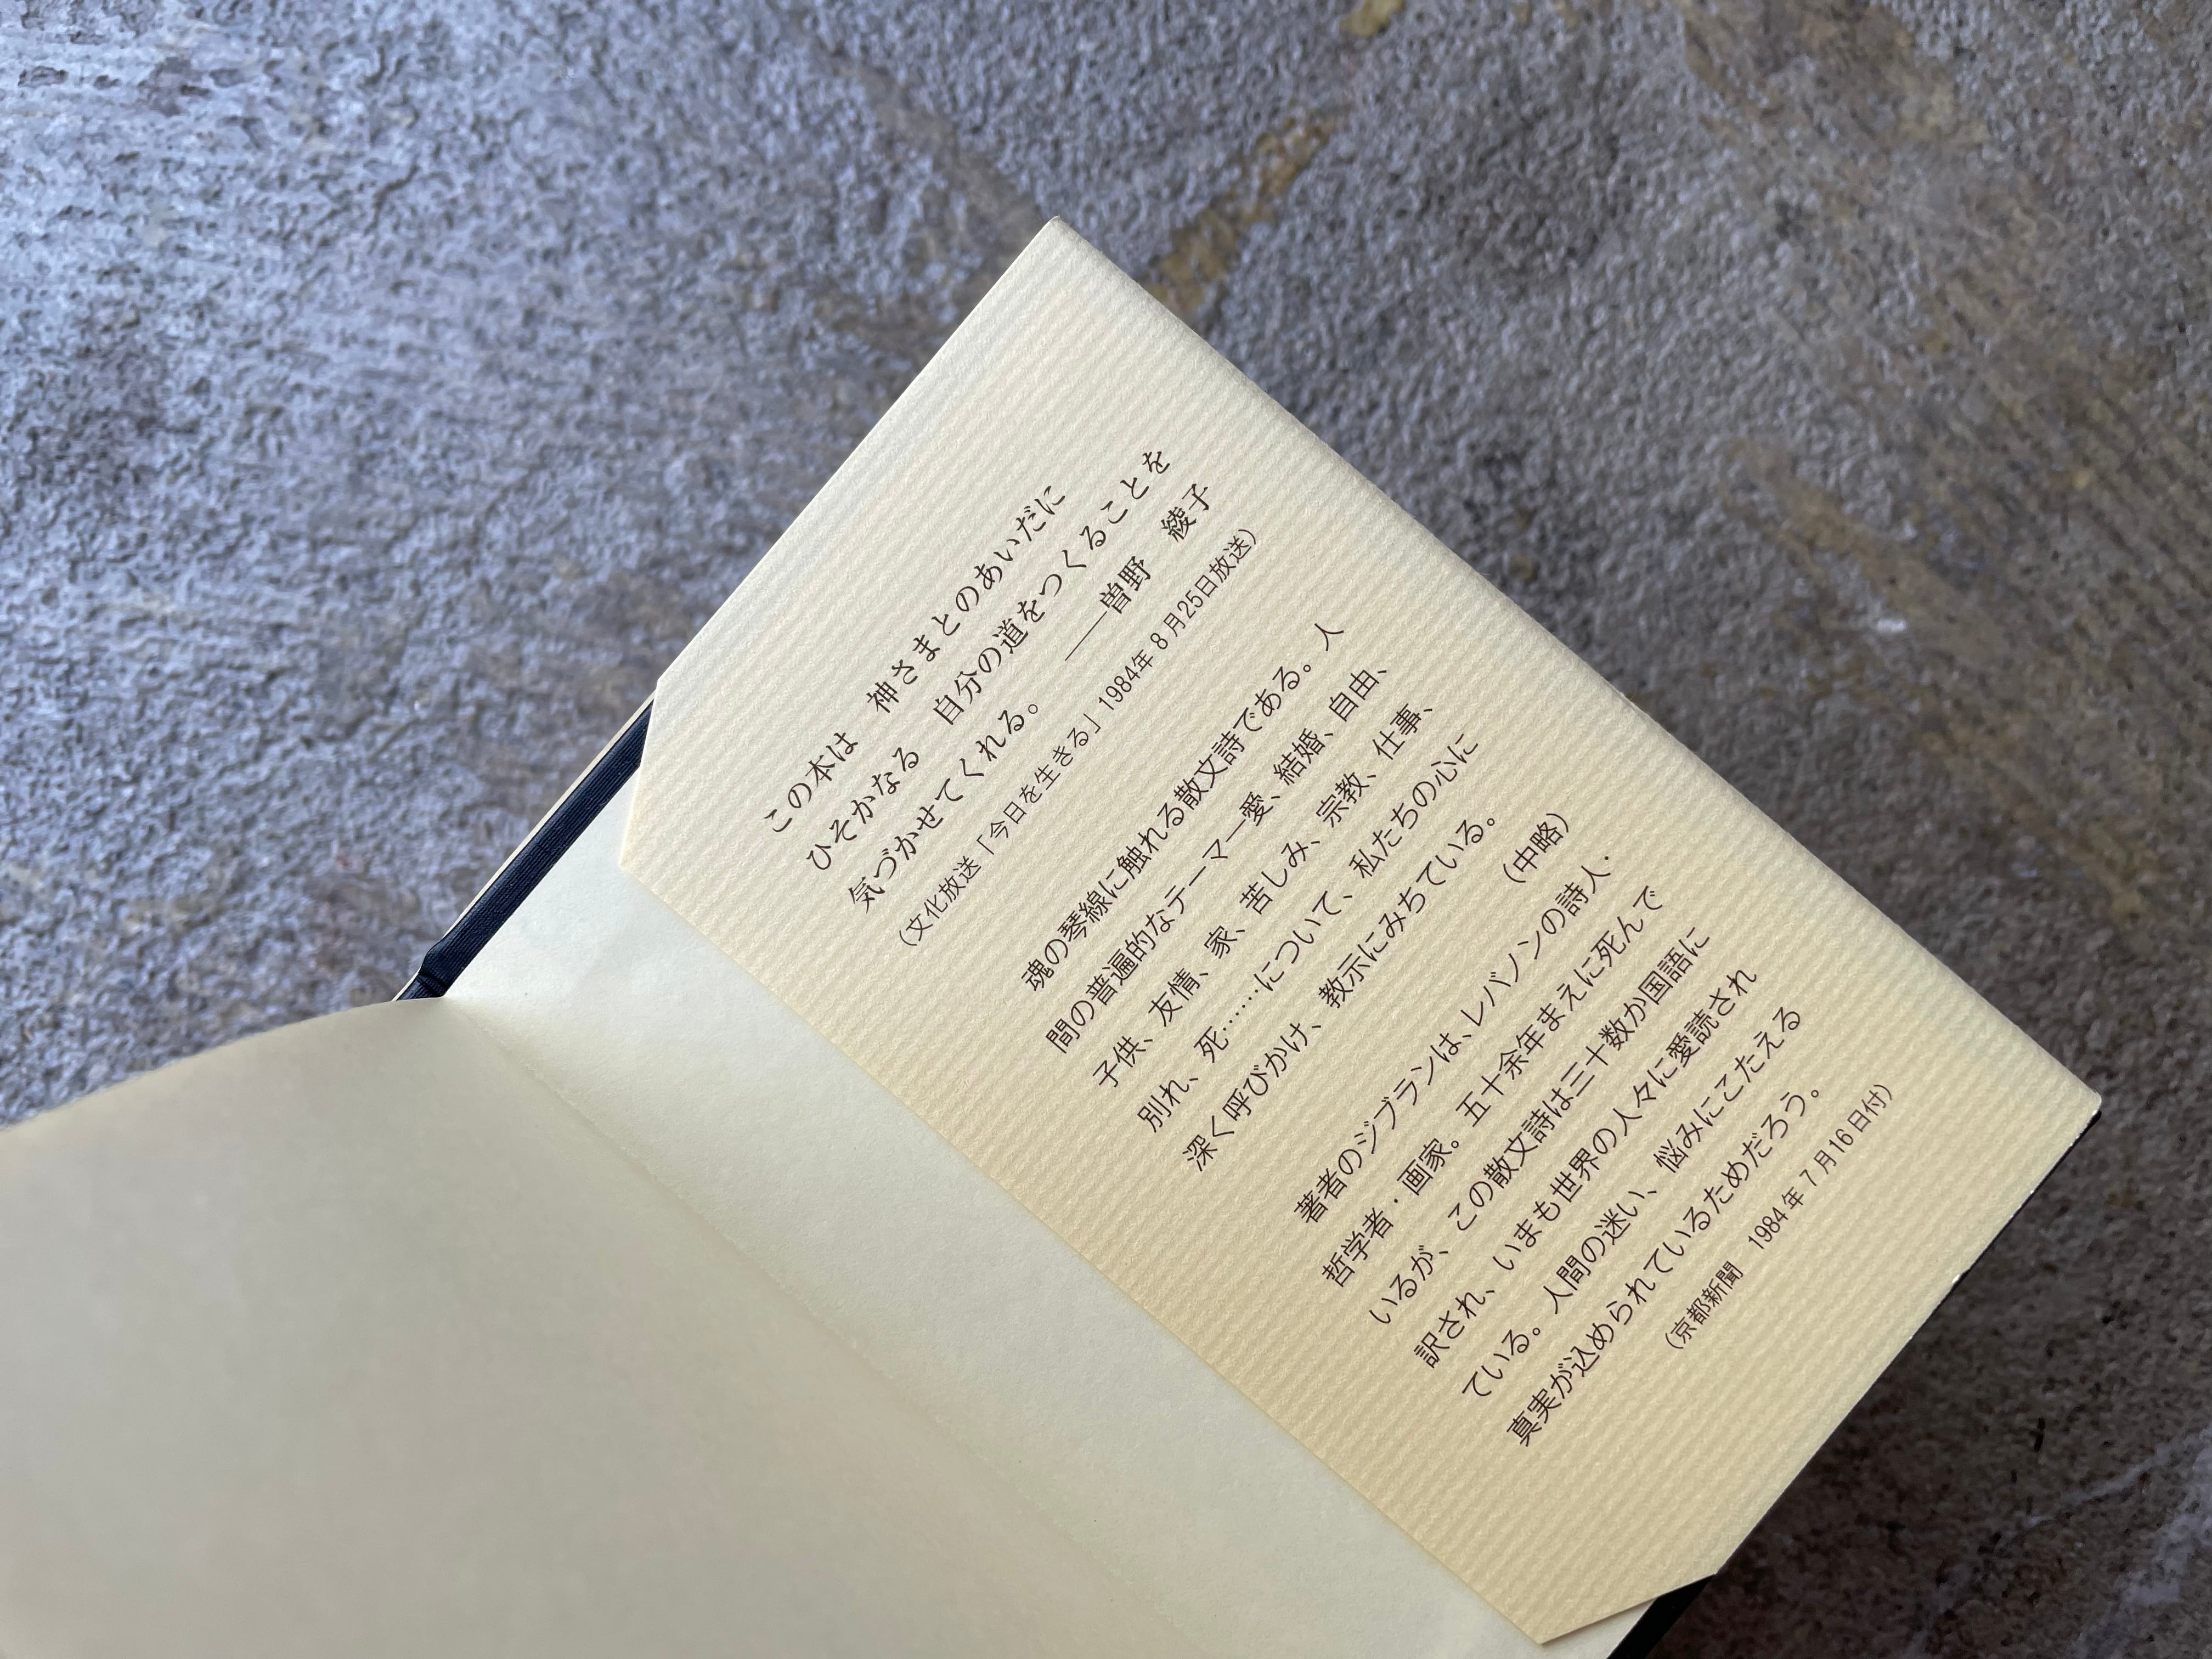 この本は　神さまとのあいだに
ひそかなる　自分の道をつくることを
気づかせてくれる。　――曽野　綾子
（文化放送「今日を生きる」1984年8月25日放送）
魂の琴線に触れる散文詩である。人
間の普遍的なテーマ―愛、結婚、自由、
子供、友情、家、苦しみ、宗教、仕事、
別れ、死……について、私たちの心に
深く呼びかけ、教示にみちている。
（中略）
著者のジブランは、レバノンの詩人・
哲学者・画家。五十余年まえに死んで
いるが、この散文詩は三十数か国語に
訳され、いまも世界の人々に愛読され
ている。人間の迷い、悩みにこたえる
真実が込められているためだろう。
（京都新聞　1984年7月16日付）